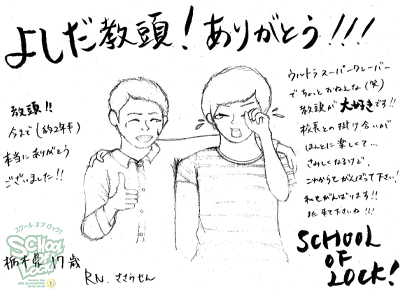 よしだ教頭!ありがとう!!!
教頭!!
今まで(約2年半)
本当にありがとう
ございました!!
ウルトラスーパークレーバー
でちょっとむねんな(笑)
教頭が大好きです!!
校長との掛け合いが
ほんとに楽しくて、
さみしくなるけど、
これからもがんばって下さい!
私もがんばります!!
また来て下さいね!!!
SCHOOL
OF
LOCK!
スクール オブ ロック!
SCHOOL
OF LOCK!
栃木県 17歳
R.N. ささみせん